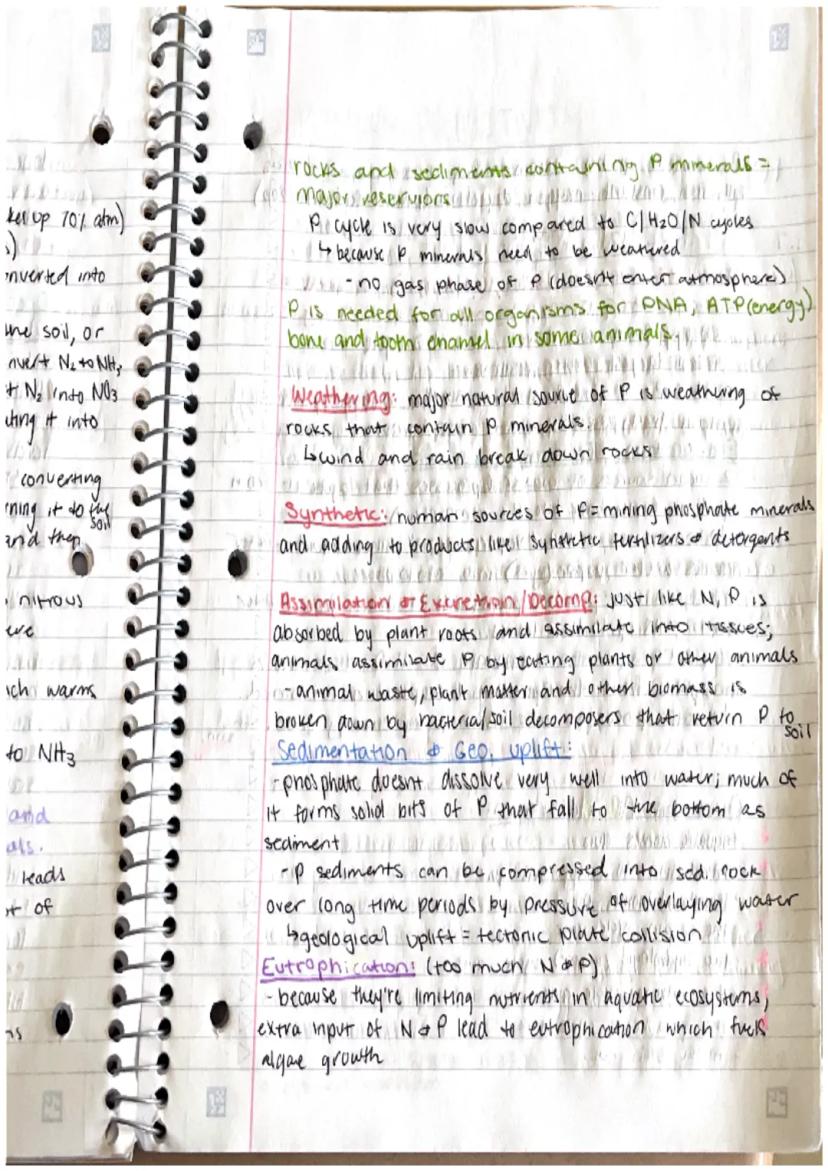 ket up 70% atm)
s)
onverted into
the soil, or
nvert N₂ to NH₃
t N₂ into NO₃
uting it into
converting
rning it to the
soil
and then
nitrous
ere
ich warms
to NH3
and
als.
leads
t of
ns
rocks and sediments containing P minerals =
major reserviors
P cycle is very slow compared to C/H2O/N cycles
↳ because P minerals need to be weathered
- no gas phase of P (doesnt enter atmosphere)
P is needed for all organisms for DNA, ATP(energy)
bone and tooth enamel in some animals.
Weathering: major natural source of P is weathering of
rocks that contain P minerals.
↳ wind and rain break down rocks
Synthetic: human sources of P = mining phosphate minerals
and adding to products like synthetic fertilizers & detergents
Assimilation & Excretion/Decomp: just like N, P is
absorbed by plant roots and assimilate into tissues;
animals assimilate P by eating plants or other animals
- animal waste, plant matter and other biomass is
broken down by bacteria/soil decomposers that return P to
soil
Sedimentation & Geo. uplift:
- phosphate doesnt dissolve very well into water; much of
it forms solid bits of P that fall to the bottom as
sediment
- P sediments can be compressed into sed. rock
over long time periods by pressure of overlaying water
↳ geological uplift = tectonic plate collision
Eutrophication: (too much N & P)
- because they're limiting nutrients in aquatic ecosystems,
extra input of N & P lead to eutrophication which fuels
algae growth